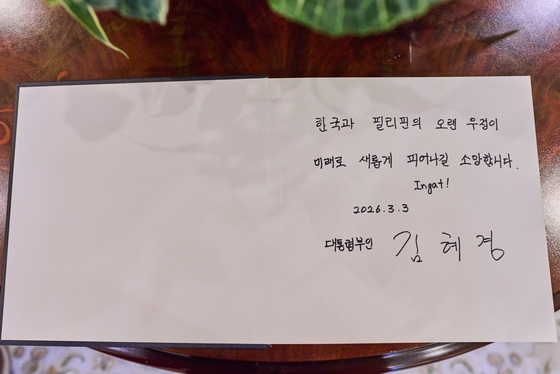 한국과 필리핀의 오랜 우정이
미래로 새롭게 피어나길 소망합니다.
Ingat!
2026.3.3
대통령부인 김혜경